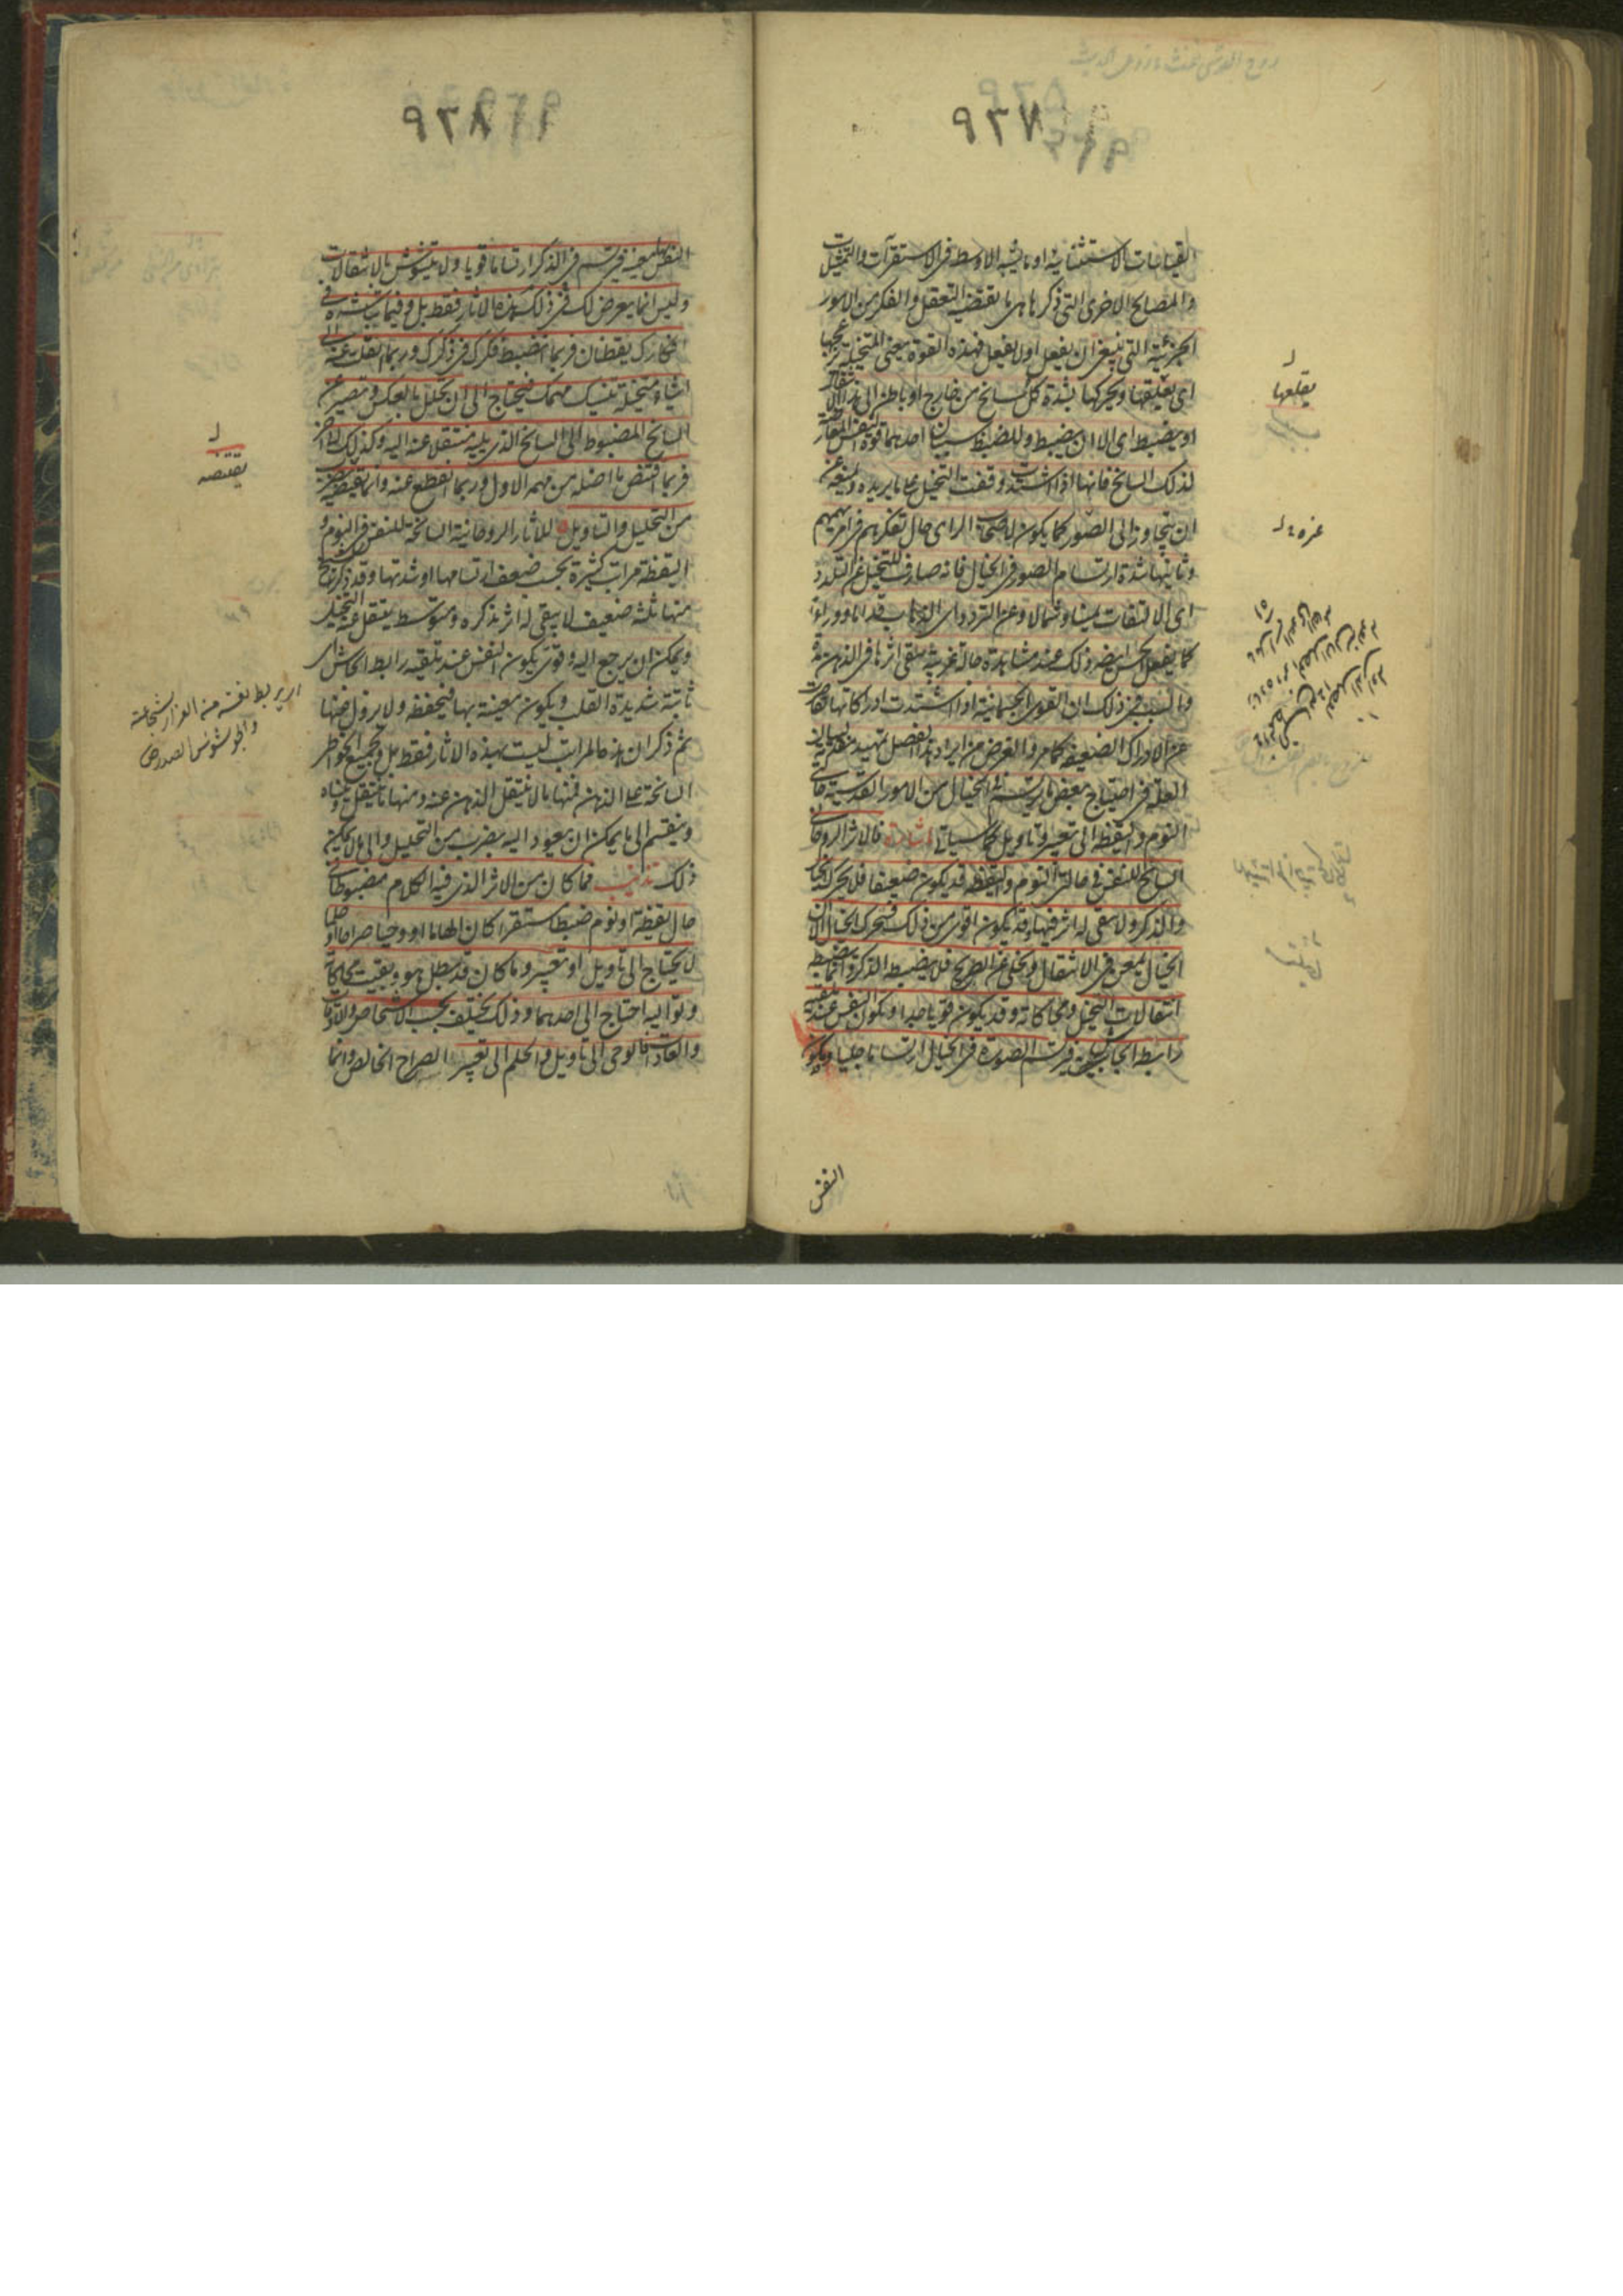 القياسات الاستثنائية او ما يشبه الاوسط فى الاستقرآت والتمثيلات
والمصالح الاخرى التى ذكرها هى ما يقتضيه التعقل والفكر من الامور
الجزئية التى ينبغى ان يفعل او لا يفعل فهذه القوة يعنى المتخيلة يزعجها
اى يقلعها ويحركها بشدة كل سانح من خارج او باطن الى هذا الانتقال
او يضبط اى الا ان يضبط وللضبط سببان احدهما قوة النفس المعارضة
لذلك السانح فانها اذا اشتدت وقفت التخيل على ما يريده ويمنعه عن
ان يتجاوز الى الصور كما يكون لاصحاب الراى حال تفكرهم فى امر يهمهم
وثانيها شدة ارتسام الصور فى الخيال فانه صارف للتخيل عن التلدد
اى الالتفات يمينا وشمالا وعن التردد اى الذهاب قداما ووراء
كما يفعل الحس ايضا وذلك عند مشاهدة حالة غريبة يبقى اثرها فى الذهن مدة
والسبب فى ذلك ان القوى الجسمانية اذا اشتدت ادراكاتها قصرت
عن الادراك الضعيفة كما مر والغرض من ايراد هذا الفصل تمهيد مقدمة لبيان
العلة فى احتياج بعض ما يرتسم فى الخيال من الامور القدسية حالتى
النوم واليقظة الى تعبير وتاويل كما سياتى اشارة فالاثر الروحانى
السانح للنفس فى حالتى النوم واليقظة قد يكون ضعيفا فلا يحرك الخيال
والذكر ولا يبقى له اثر فيهما وقد يكون اقوى من ذلك فيحرك الخيال الا ان
الخيال يمعن فى الانتقال ويخلى عن الصريح فلا يضبطه الذكر وانما يضبط
انتقالات التخيل ومحاكاته وقد يكون قويا جدا ويكون النفس عند تلقيه
رابطة الجاش فيرتسم الصورة فى الخيال ارتساما جليا ويكون
النفس
يقلعها
النفس بها معنية فيرتسم فى الذكر ارتساما قويا ولا يتشوش بالانتقالات
وليس انما يعرض لك فى ذلك هذه الاثار فقط بل وفيما تباشره فى
افكارك يقظان فربما انضبط فكرك فى ذكرك وربما انتقلت عنه الى
اشياء متخيلة تنسيك مهمك فيحتاج الى ان تحلل بالعكس وتصير عن
السانح المضبوط الى السانح الذى يليه منتقلا عنه اليه وكذلك الى اخر
فربما اقتنص ما اضله من مهمه الاول وربما انقطع عنه وانما يقتنصه بضرب
من التحليل والتاويل للاثار الروحانية السانحة للنفس فى النوم و
اليقظة مراتب كثيرة بحسب ضعف ارتسامها او شدتها وقد ذكر الشيخ
منها ثلثة ضعيف لا يبقى له اثر يذكره ومتوسط ينتقل عنه التخيل
ويمكن ان يرجع اليه وقوى يكون النفس عند تلقيه رابط الجاش اى
ثابتة شديدة القلب ويكون معينة بها فيحفظه ولا يزول عنها
ثم ذكر ان هذه المراتب ليست بهذه الاثار فقط بل وبجميع الخواطر
السانحة على الذهن فمنها ما لا ينتقل الذهن عنه ومنها ما ينتقل وينساه
وينقسم الى ما يمكن ان يعود اليه بضرب من التحليل والى ما لا يمكن
ذلك تذنيب فما كان من الاثر الذى فيه الكلام مضبوطا فى
حال يقظة او نوم ضبطا مستقرا كان الهاما او وحيا صراحا او حلما
لا يحتاج الى تاويل او تعبير وما كان قد بطل هو وبقيت محاكاته
وتواليه احتاج الى احدهما وذلك يختلف بحسب الاشخاص والاوقات
والعادات فالوحى الى تاويل والحلم الى تعبير الصراح الخالص وانما
يقتنصه